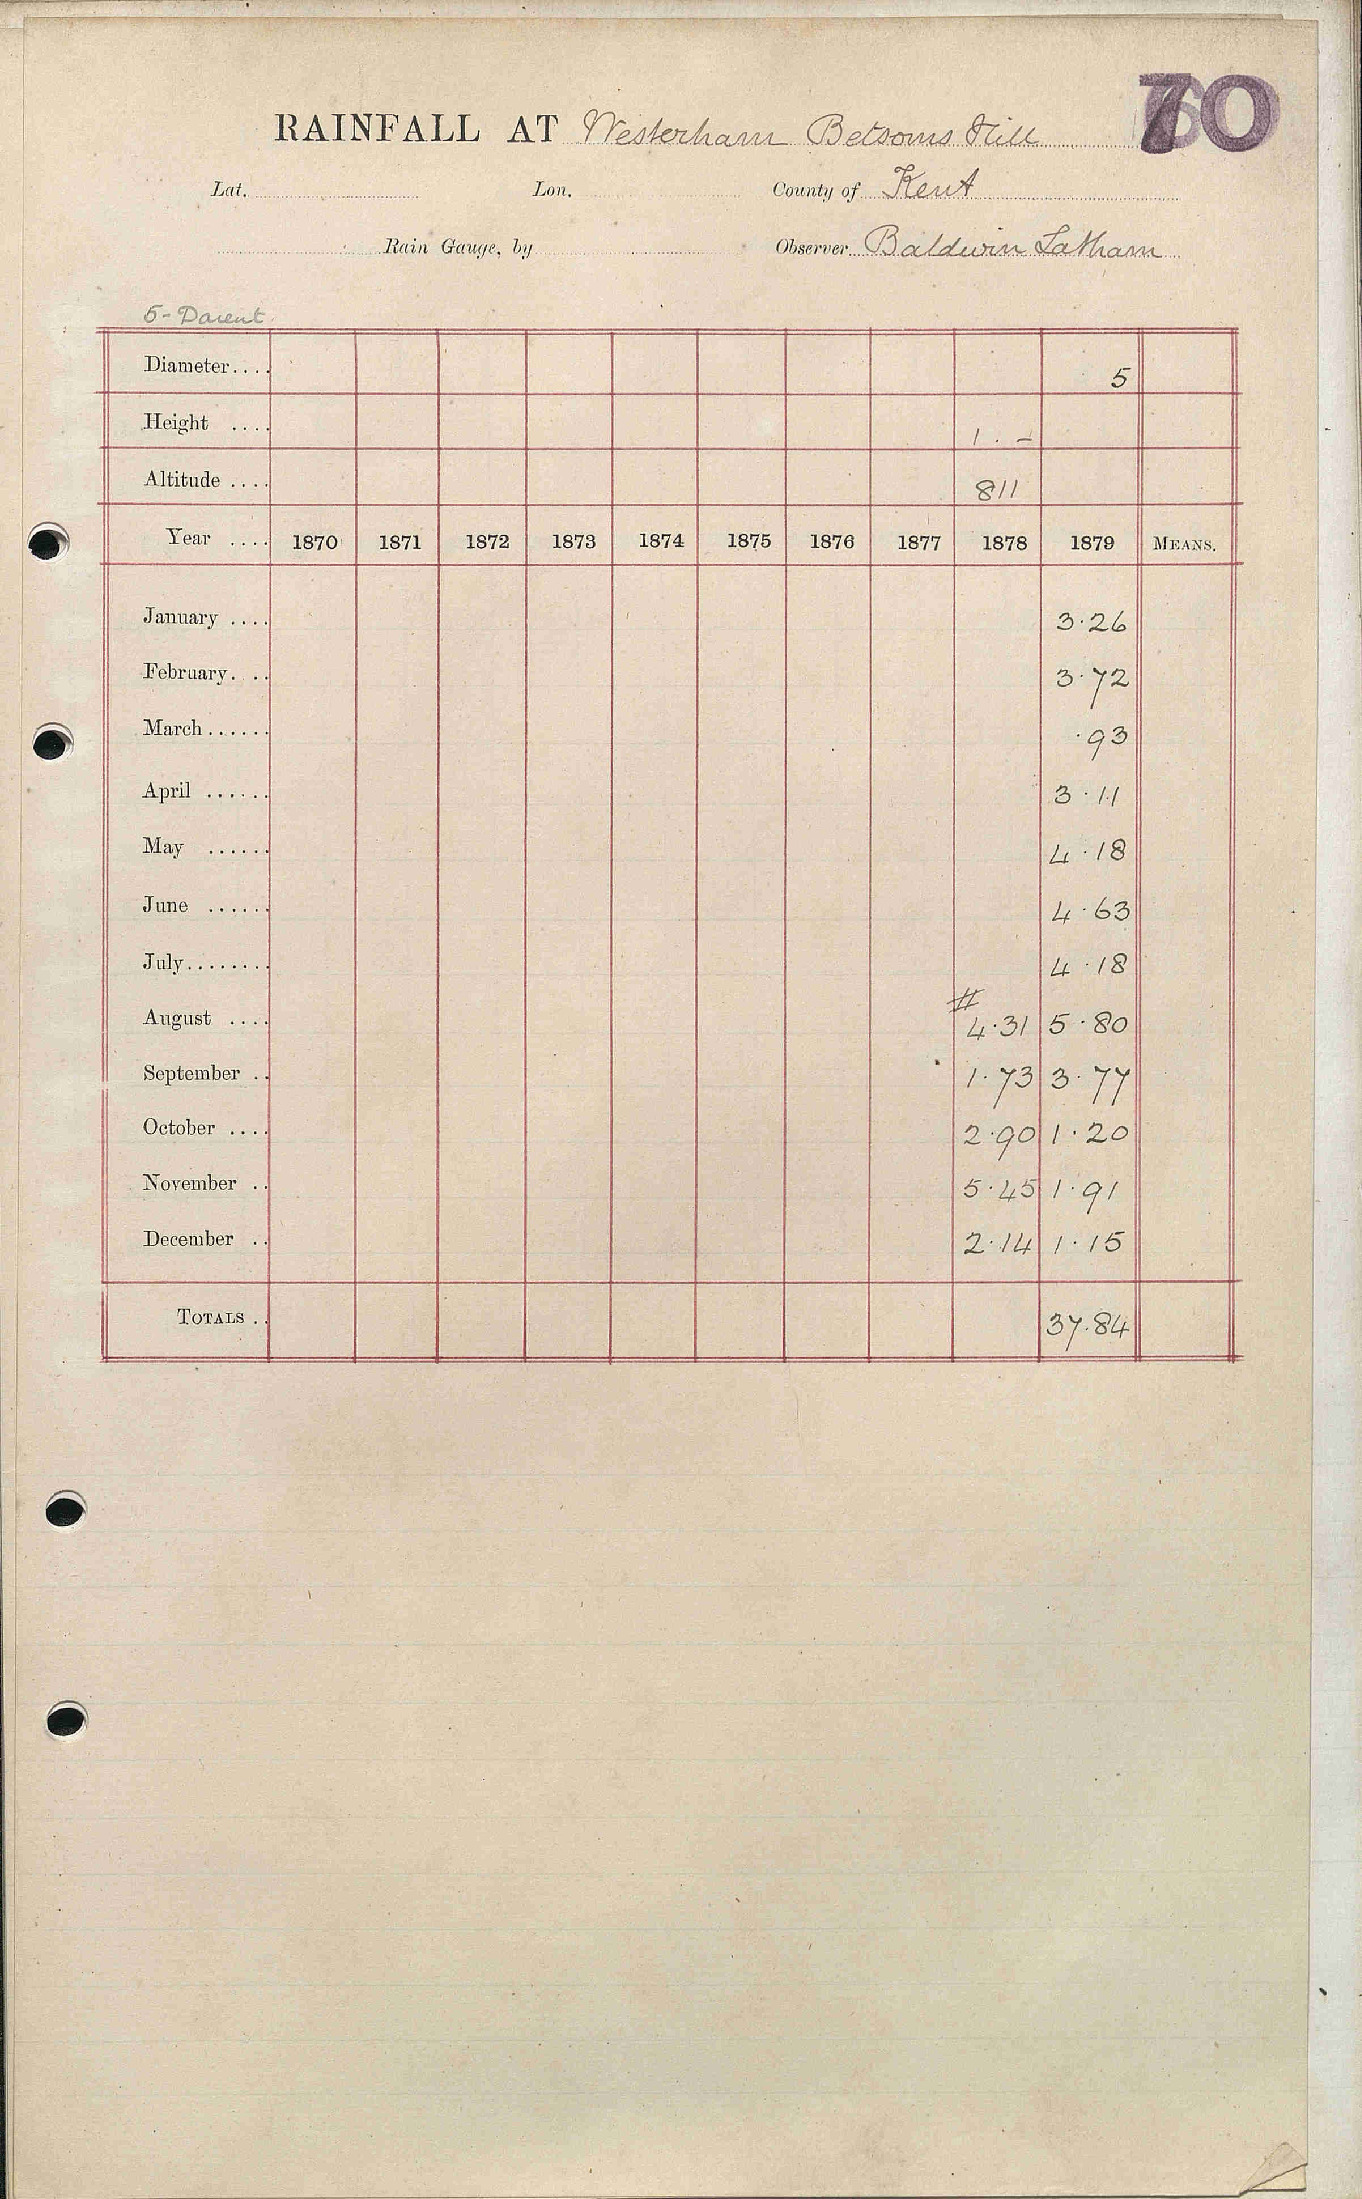 70
RAINFALL AT Westerham Betsoms Hill
Lat. Lon. County of Kent
Rain Gauge, by Observer Baldwin Latham
5-Darent
Diameter.... 5
Height .... 1. -
Altitude .... 811
Year .... 1870 1871 1872 1873 1874 1875 1876 1877 1878 1879 MEANS.
January .... 3.26
February. .. 3.72
March ...... .93
April ...... 3.11
May ...... 4.18
June ...... 4.63
July........ 4.18
#
August .... 4.31 5.80
September .. 1.73 3.77
October .... 2.90 1.20
November .. 5.45 1.91
December .. 2.14 1.15
TOTALS .. 37.84